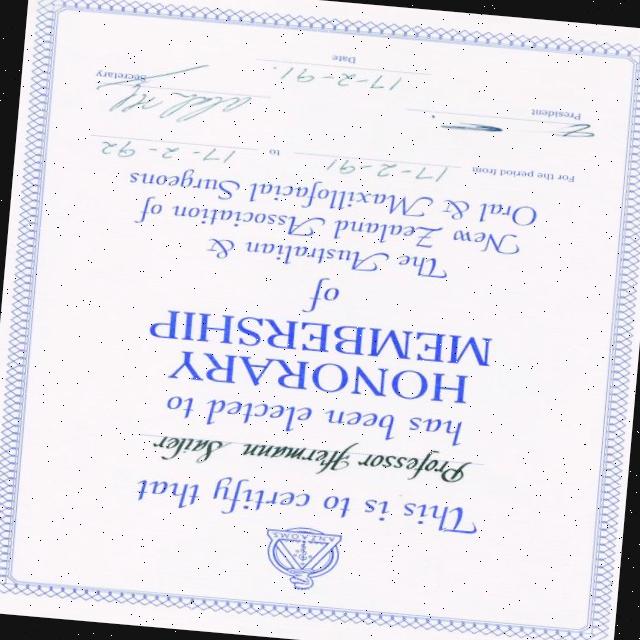 ANZAOMS
This is to certify that
Professor Hermann Sailer
has been elected to
HONORARY
MEMBERSHIP
of
The Australian &
New Zealand Association of
Oral & Maxillofacial Surgeons
For the period from 17-2-91 to 17-2-92
President
Secretary
17-2-91.
Date